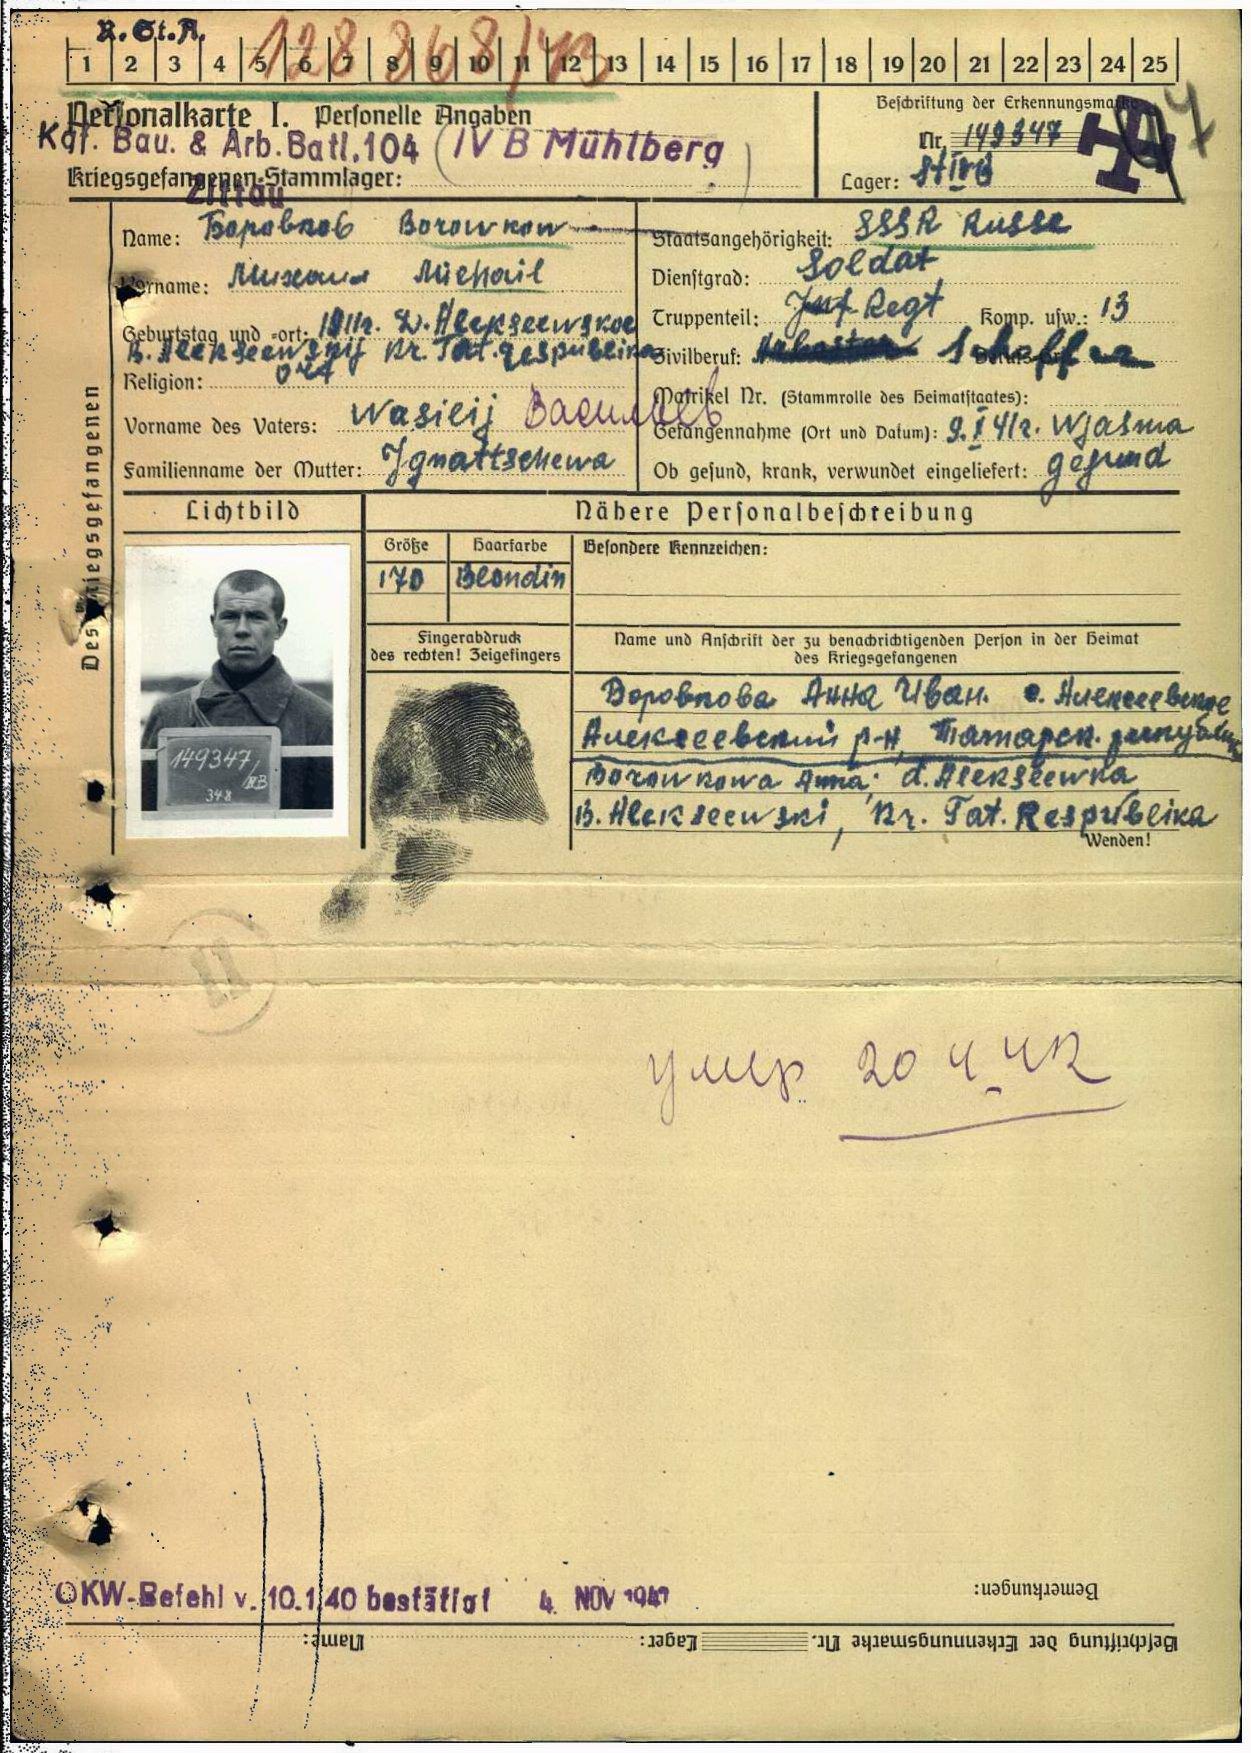 K. St. A.
128 868/43
1 2 3 4 5 6 7 8 9 10 11 12 13 14 15 16 17 18 19 20 21 22 23 24 25
Personalkarte I. Personelle Angaben
Kgf. Bau. & Arb. Batl. 104 (IV B Mühlberg)
Kriegsgefangenen-Stammlager:
Zittau
Beschriftung der Erkennungsmarke
Nr. 149347
Lager: St IV B
Des Kriegsgefangenen
Name: Боровков Borowkow
Vorname: Михаил Michail
Geburtstag und -ort: 1911r. D. Alekseewskoe
B. Alekseewskij Kr. Tat. Respublika
Religion: ort
Vorname des Vaters: Wasilij Васильев
Familienname der Mutter: Ignattschewa
Staatsangehörigkeit: SSSR Russe
Dienstgrad: Soldat
Truppenteil: Inf Regt Komp. usw.: 13
Zivilberuf: Schoffer
Matrikel Nr. (Stammrolle des Heimatstaates):
Gefangennahme (Ort und Datum): 9. X 41r. Wjasma
Ob gesund, krank, verwundet eingeliefert: gesund
Lichtbild
149347/
IVB
348
Nähere Personalbeschreibung
Größe
170
Haarfarbe
Blondin
Besondere Kennzeichen:
Fingerabdruck
des rechten! Zeigefingers
Name und Anschrift der zu benachrichtigenden Person in der Heimat
des Kriegsgefangenen
Боровкова Анна Иван. с. Алексеевское
Алексеевский р-н, Татарск. республик
Borowkowa Anna; d. Alekseewka
B. Alekseewski, Kr. Tat. Respublika
Wenden!
умер 20 4 42
OKW-Befehl v. 10.1.40 bestätigt 4. NOV 1941
Bemerkungen:
Beschriftung der Erkennungsmarke Nr. Lager: Name: